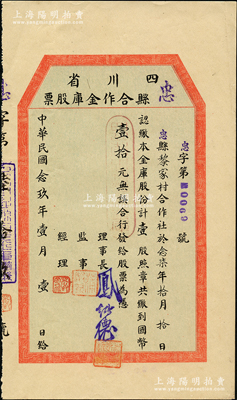 四川省
忠縣合作金庫股票
忠字第 0069 號
忠縣黎家村合作社於念柒年拾月拾日
認繳本金庫股份計壹股照章共繳到國幣
壹拾元無訛合行發給股票為憑
理事長
監事
經理
中華民國念玖年壹月壹日給
上海陽明拍賣